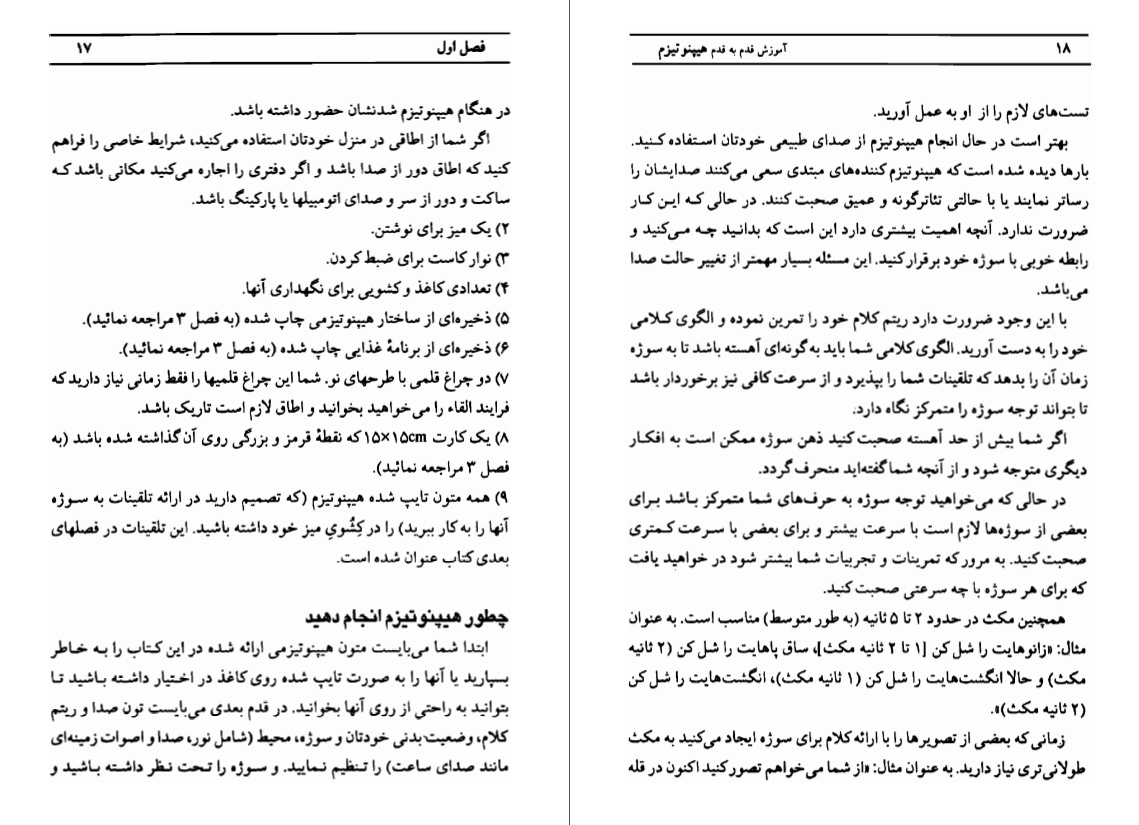 فصل اول ۱۷
در هنگام هیپنوتیزم شدنشان حضور داشته باشد.
اگر شما از اطاقی در منزل خودتان استفاده می‌کنید، شرایط خاصی را فراهم
کنید که اطاق دور از صدا باشد و اگر دفتری را اجاره می‌کنید مکانی باشد که
ساکت و دور از سر و صدای اتومبیلها یا پارکینگ باشد.
۲) یک میز برای نوشتن.
۳) نوار کاست برای ضبط کردن.
۴) تعدادی کاغذ و کشویی برای نگهداری آنها.
۵) ذخیره‌ای از ساختار هیپنوتیزمی چاپ شده (به فصل ۳ مراجعه نمائید).
۶) ذخیره‌ای از برنامهٔ غذایی چاپ شده (به فصل ۳ مراجعه نمائید).
۷) دو چراغ قلمی با طرحهای نو. شما این چراغ قلمیها را فقط زمانی نیاز دارید که
فرایند القاء را می‌خواهید بخوانید و اطاق لازم است تاریک باشد.
۸) یک کارت ۱۵×۱۵cm که نقطهٔ قرمز و بزرگی روی آن گذاشته شده باشد (به
فصل ۳ مراجعه نمائید).
۹) همه متون تایپ شده هیپنوتیزم (که تصمیم دارید در ارائه تلقینات به سوژه
آنها را به کار ببرید) را در کِشُویِ میز خود داشته باشید. این تلقینات در فصلهای
بعدی کتاب عنوان شده است.
چطور هیپنوتیزم انجام دهید
ابتدا شما می‌بایست متون هیپنوتیزمی ارائه شده در این کتاب را به خاطر
بسپارید یا آنها را به صورت تایپ شده روی کاغذ در اختیار داشته باشید تا
بتوانید به راحتی از روی آنها بخوانید. در قدم بعدی می‌بایست تون صدا و ریتم
کلام، وضعیت‌بدنی خودتان و سوژه، محیط (شامل نور، صدا و اصوات زمینه‌ای
مانند صدای ساعت) را تنظیم نمایید. و سوژه را تحت نظر داشته باشید و
۱۸ آموزش قدم به قدم هیپنوتیزم
تست‌های لازم را از او به عمل آورید.
بهتر است در حال انجام هیپنوتیزم از صدای طبیعی خودتان استفاده کنید.
بارها دیده شده است که هیپنوتیزم کننده‌های مبتدی سعی می‌کنند صدایشان را
رساتر نمایند یا با حالتی تئاترگونه و عمیق صحبت کنند. در حالی که این کار
ضرورت ندارد. آنچه اهمیت بیشتری دارد این است که بدانید چه می‌کنید و
رابطه خوبی با سوژه خود برقرار کنید. این مسئله بسیار مهمتر از تغییر حالت صدا
می‌باشد.
با این وجود ضرورت دارد ریتم کلام خود را تمرین نموده و الگوی کلامی
خود را به دست آورید. الگوی کلامی شما باید به گونه‌ای آهسته باشد تا به سوژه
زمان آن را بدهد که تلقینات شما را بپذیرد و از سرعت کافی نیز برخوردار باشد
تا بتواند توجه سوژه را متمرکز نگاه دارد.
اگر شما بیش از حد آهسته صحبت کنید ذهن سوژه ممکن است به افکار
دیگری متوجه شود و از آنچه شما گفته‌اید منحرف گردد.
در حالی که می‌خواهید توجه سوژه به حرف‌های شما متمرکز باشد برای
بعضی از سوژه‌ها لازم است با سرعت بیشتر و برای بعضی با سرعت کمتری
صحبت کنید. به مرور که تمرینات و تجربیات شما بیشتر شود در خواهید یافت
که برای هر سوژه با چه سرعتی صحبت کنید.
همچنین مکث در حدود ۲ تا ۵ ثانیه (به طور متوسط) مناسب است. به عنوان
مثال: «زانوهایت را شل کن [۱ تا ۲ ثانیه مکث]، ساق پاهایت را شل کن (۲ ثانیه
مکث) و حالا انگشت‌هایت را شل کن (۱ ثانیه مکث)، انگشت‌هایت را شل کن
(۲ ثانیه مکث)».
زمانی که بعضی از تصویرها را با ارائه کلام برای سوژه ایجاد می‌کنید به مکث
طولانی‌تری نیاز دارید. به عنوان مثال: «از شما می‌خواهم تصور کنید اکنون در قله